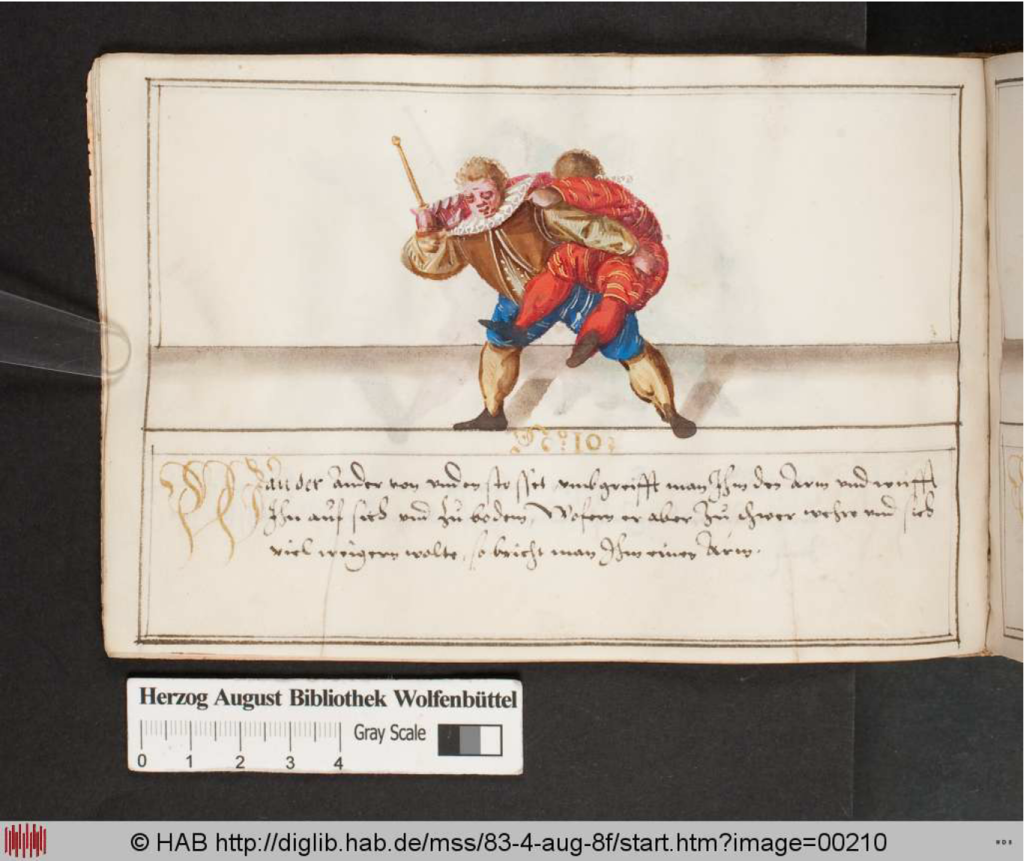 No: 101
Wan der Ander von unden stosset, umbgreifft man Ihm den Arm und würfft
Ihn auf sich und zu bodem, Wofern er aber zu zwer wehre und sich
viel weigern wolte, so bricht man Ihm einen Arm.
Herzog August Bibliothek Wolfenbüttel
Gray Scale
0 1 2 3 4
© HAB http://diglib.hab.de/mss/83-4-aug-8f/start.htm?image=00210